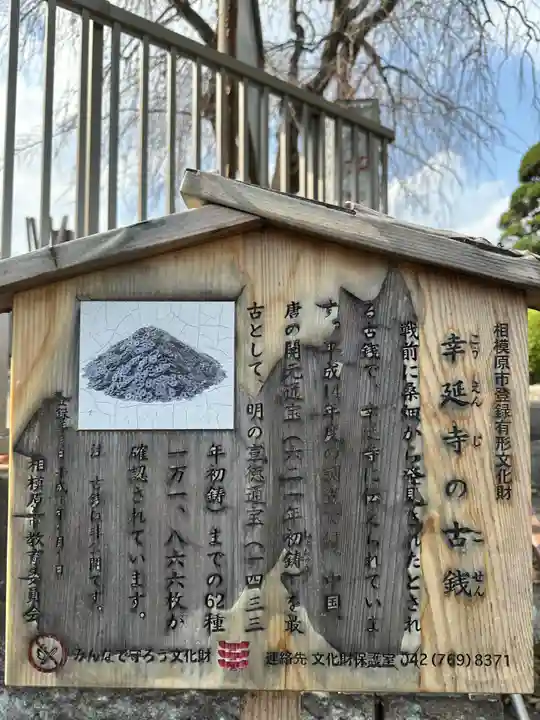 相模原市登録有形文化財
幸延寺の古銭
こうえんじ
こせん
戦前に桑畑から発見されたとされ
る古銭で、幸延寺に伝えられていま
す。平成14年度の調査の結果、中国、
唐の開元通宝（六二一年初鋳）を最
古として、明の宣徳通宝（一四三三
年初鋳）までの62種
一万一、八六六枚が
確認されています。
注 古銭は非公開です。
相模原市教育委員会
みんなで守ろう文化財
連絡先 文化財保護室 042(769)8371